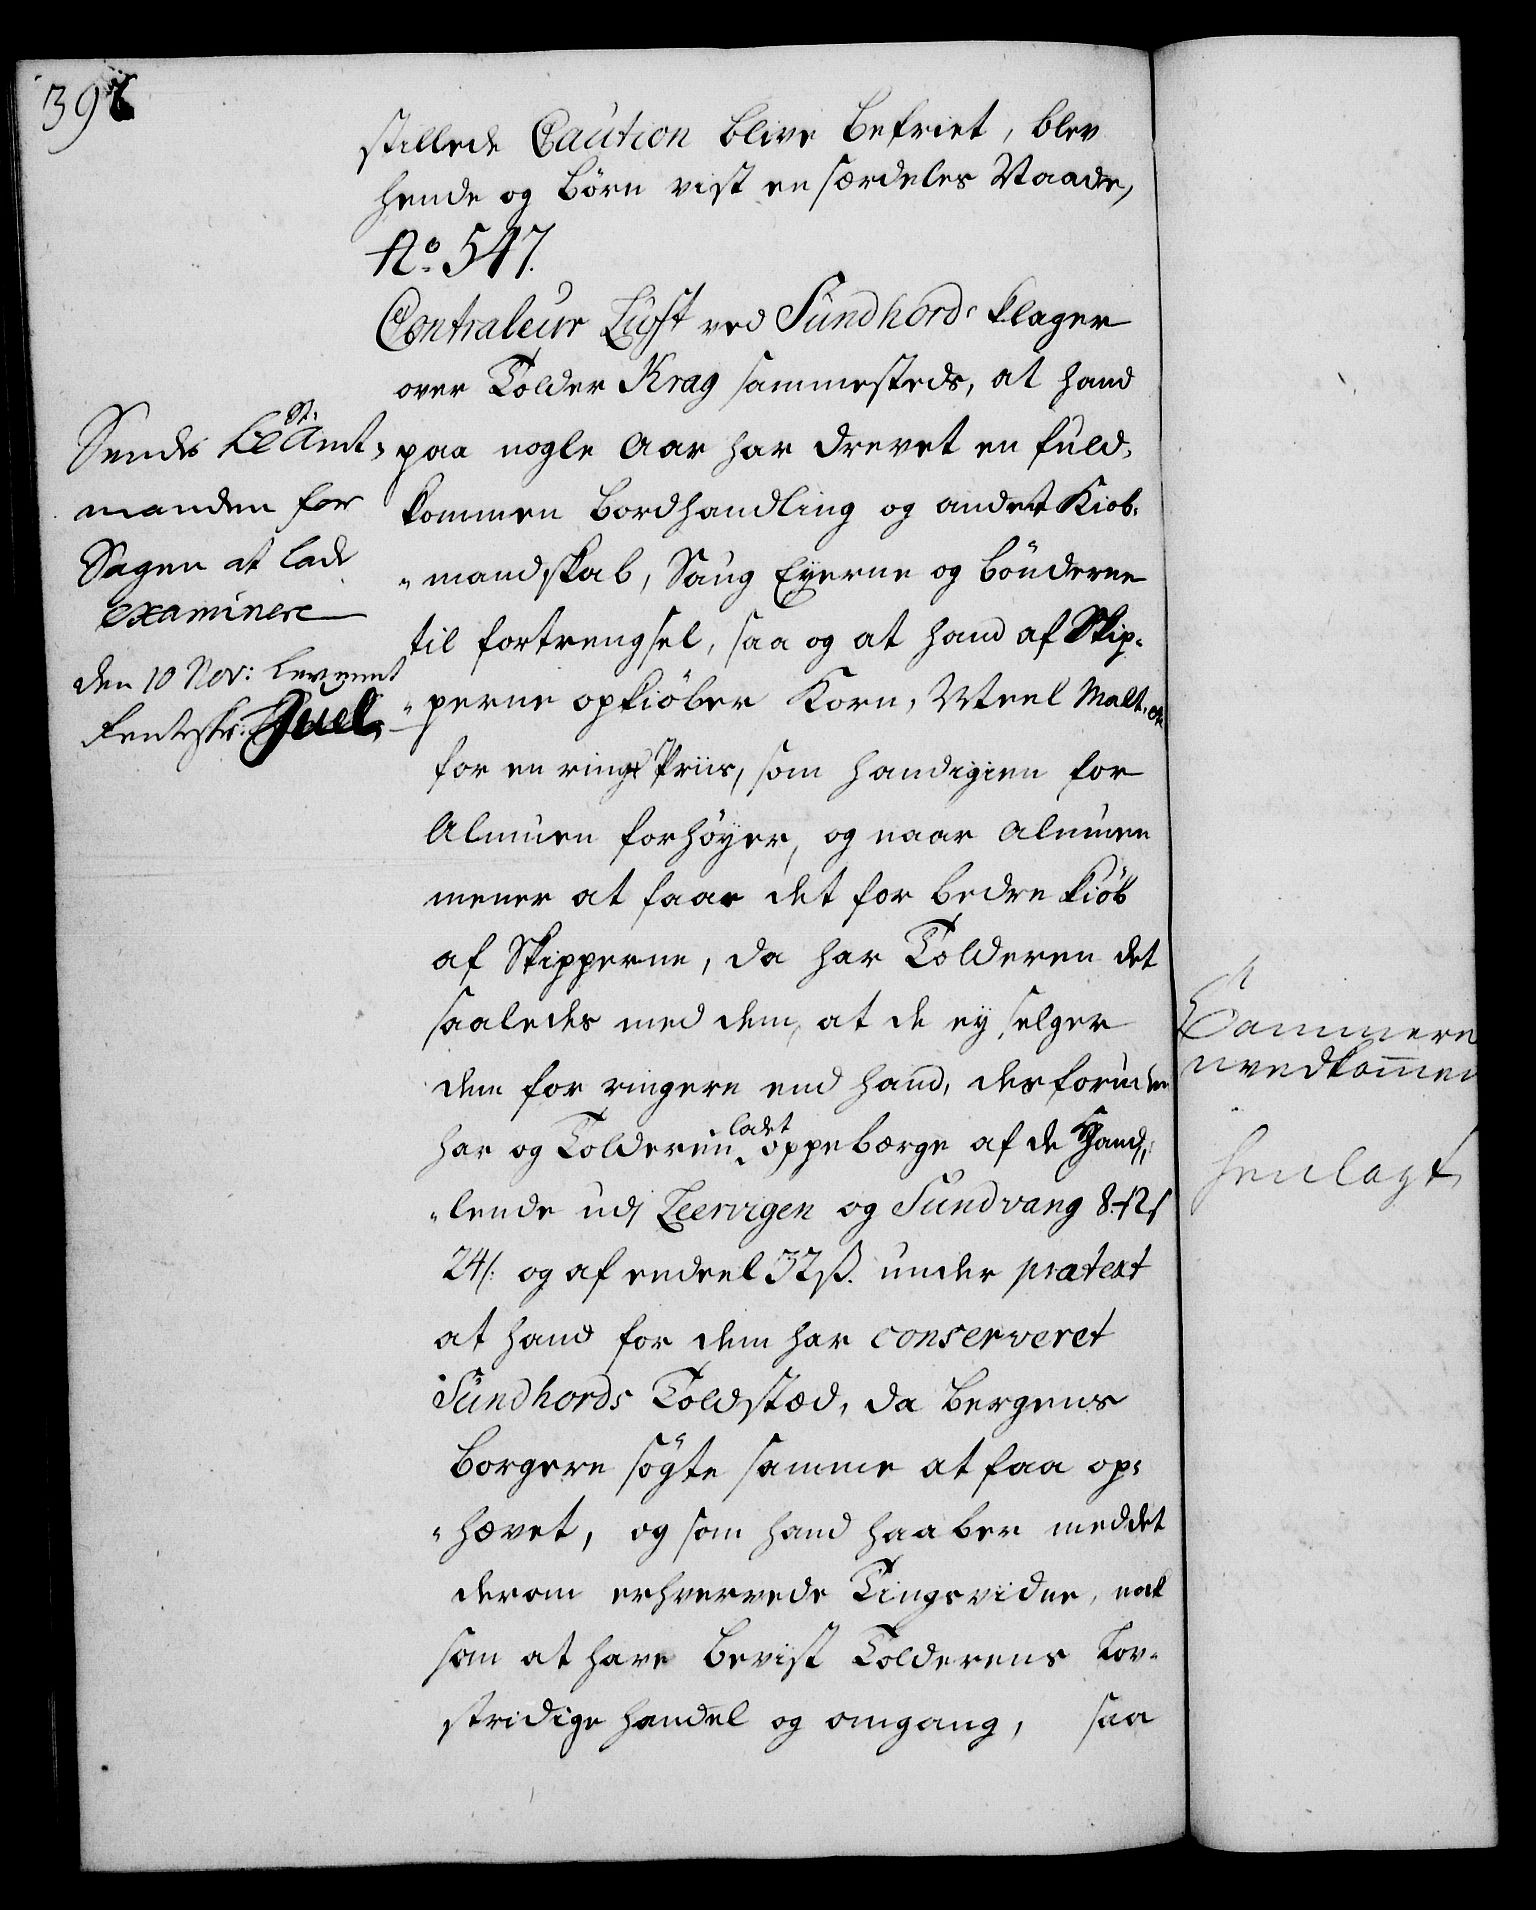 398
stillede Caution blive befriet, blev
hende og børn vist en særdeles Naade,
No. 547.
Contraleur Lust ved Sundhord: klager
over Tolder Krag sammesteds, at hand
paa nogle Aar har drevet en fuld-
kommen bordhandling og andet Kiøb-
mandskab, Saug Eyerne og bönderne
til fortrengsel, saa og at hand af Skip-
perne opkiöber Korn, Meel Malt, etc
for en ringe Priis, som hand igien for
Almuen forhöyer, og naar Almuen
mener at faae det for bedre kiöb
af Skipperne, da har Tolderen det
saaledes med dem, at de ey selger
dem for ringere end hand, desforuden
har og Tolderen ladet oppebærge af de Hand-
lende udj Leervigen og Sundvang
24 s: og af endeel 32 ß. under prætext
at hand for dem har conserveret
Sundhords Toldstæd, da Bergens
Borgere sögte samme at faa op-
hævet, og som hand haaber med det
derom erhvervede Tingsvidne,
som at have bevist Tolderens Lov-
stridige handel og omgang, saa
Sendes St: Amt-
manden for
Sagen at lade
examinere
den 10 Nov:
Juel
Cammeret
uvedkommen
henlagt